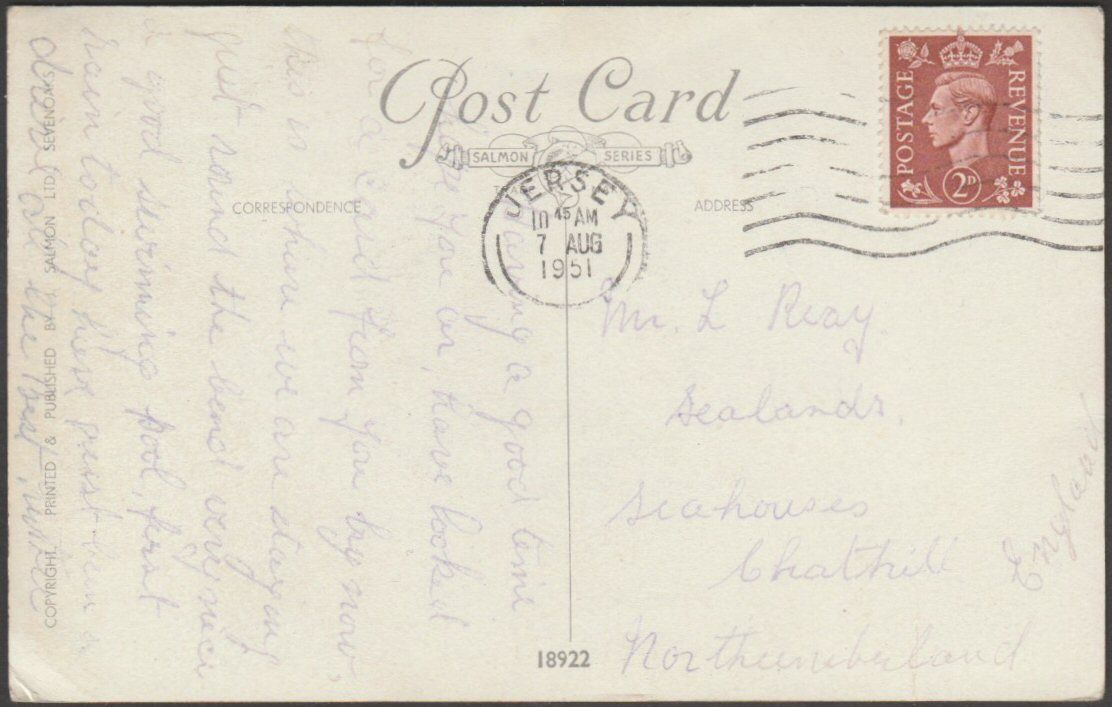 Post Card
SALMON SERIES
CORRESPONDENCE
ADDRESS
JERSEY
10 45 AM
7 AUG
1951
POSTAGE
REVENUE
2D
Having a good time
hope you are, have looked
for a card from you by now,
this is where we are staying
just round the bend very nice
a good swimming pool, first
rain today here
all the best
Mr. L Reay.
Sealands.
Seahouses
Chathill
Northumberland
England
18922
COPYRIGHT. PRINTED & PUBLISHED BY J. SALMON LTD. SEVENOAKS